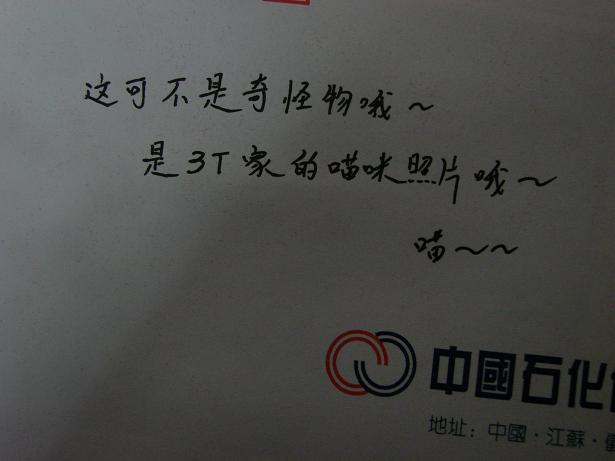 这可不是奇怪物哦～
是3T家的喵咪照片哦～
喵～～
中國石化
地址：中國·江蘇·